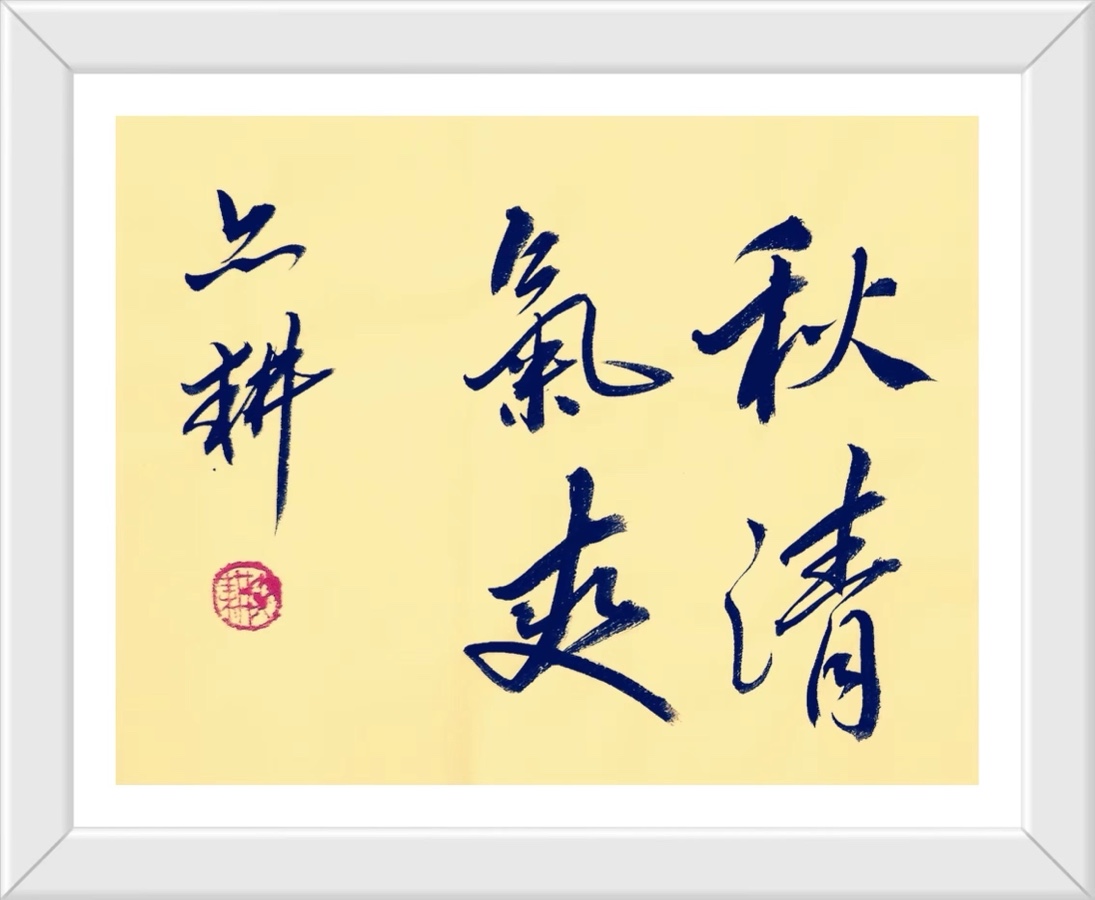 秋清
氣爽
耕